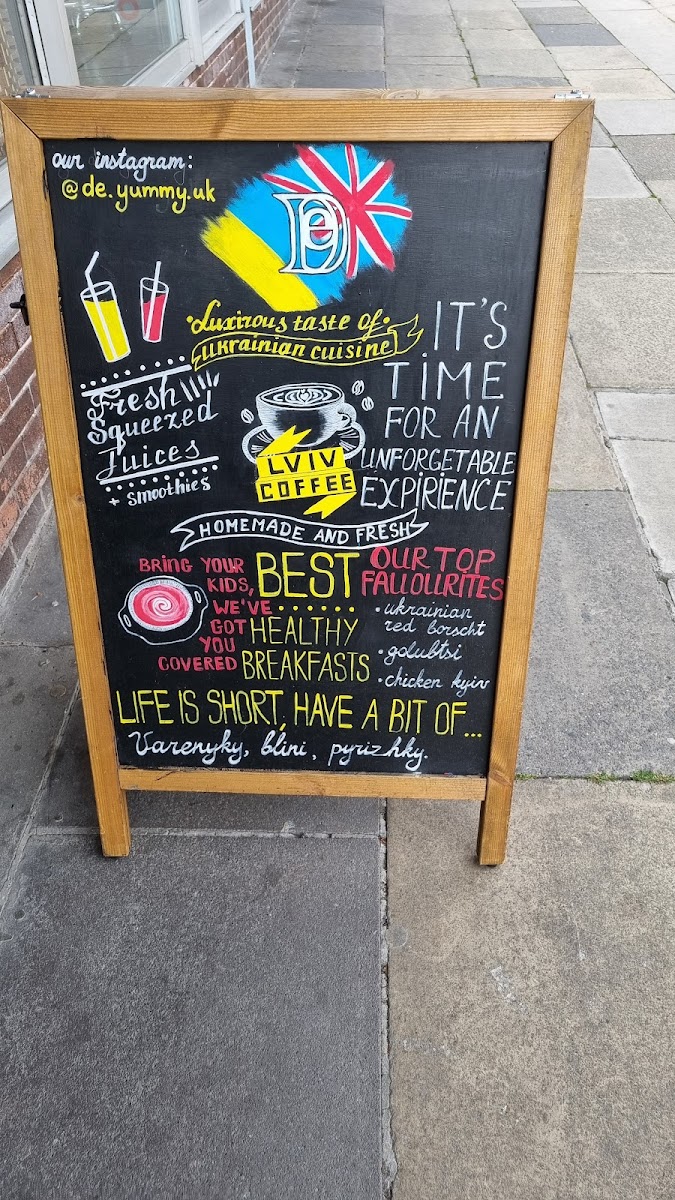 our instagram:
@de.yummy.uk
De
•Luxirous taste of•
ukrainian cuisine
Fresh
Squeezed
Juices
+ smoothies
LVIV
COFFEE
IT'S
TIME
FOR AN
UNFORGETABLE
EXPIRIENCE
HOMEMADE AND FRESH
BRING YOUR
KIDS,
WE'VE
GOT
YOU
COVERED
BEST
HEALTHY
BREAKFASTS
OUR TOP
FALLOURITES
•ukrainian
red borscht
•golubtsi
•chicken kyiv
LIFE IS SHORT, HAVE A BIT OF...
Varenyky, blini, pyrizhky.